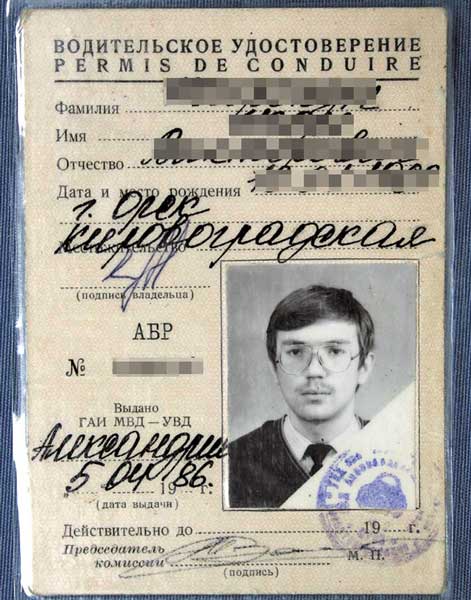 ВОДИТЕЛЬСКОЕ УДОСТОВЕРЕНИЕ
PERMIS DE CONDUIRE
Фамилия
Имя
Отчество
Дата и место рождения
г. Орск
Кировоградская
Местожительство
(подпись владельца)
АБР
№
Выдано
ГАИ МВД—УВД
Александрия
„ 5 04 1986 г.
(дата выдачи)
Действительно до 19 г.
Председатель
комиссии
М. П.
(подпись)